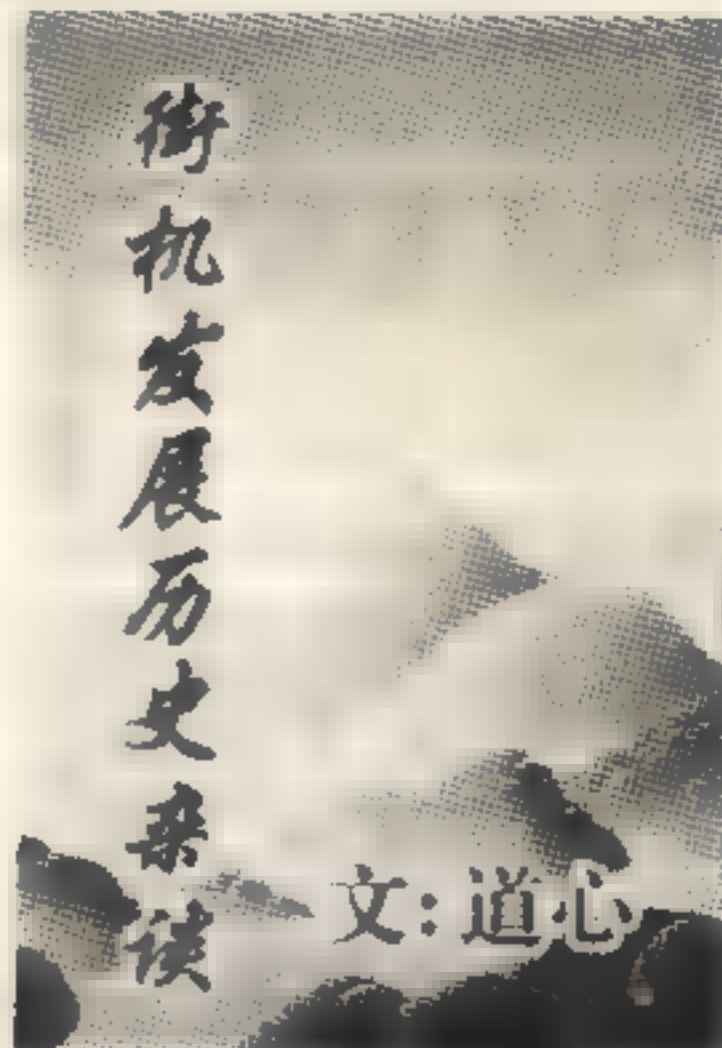 街机发展历史杂谈
文:道心